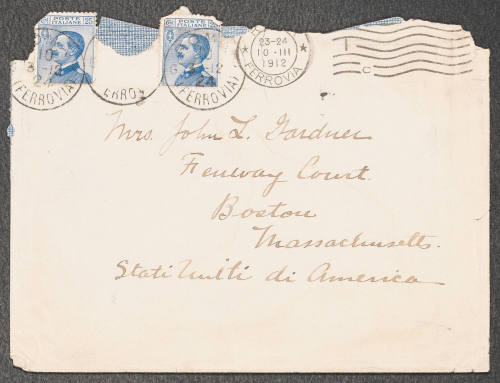 POSTE
ITALIANE
POSTE
ITALIANE
23-24
10·III
1912
FERROVIA
(FERROVIA)
ERROV
(FERROVIA)
Mrs. John L. Gardner
Fenway Court.
Boston
Massachusetts.
Stati Uniti di America